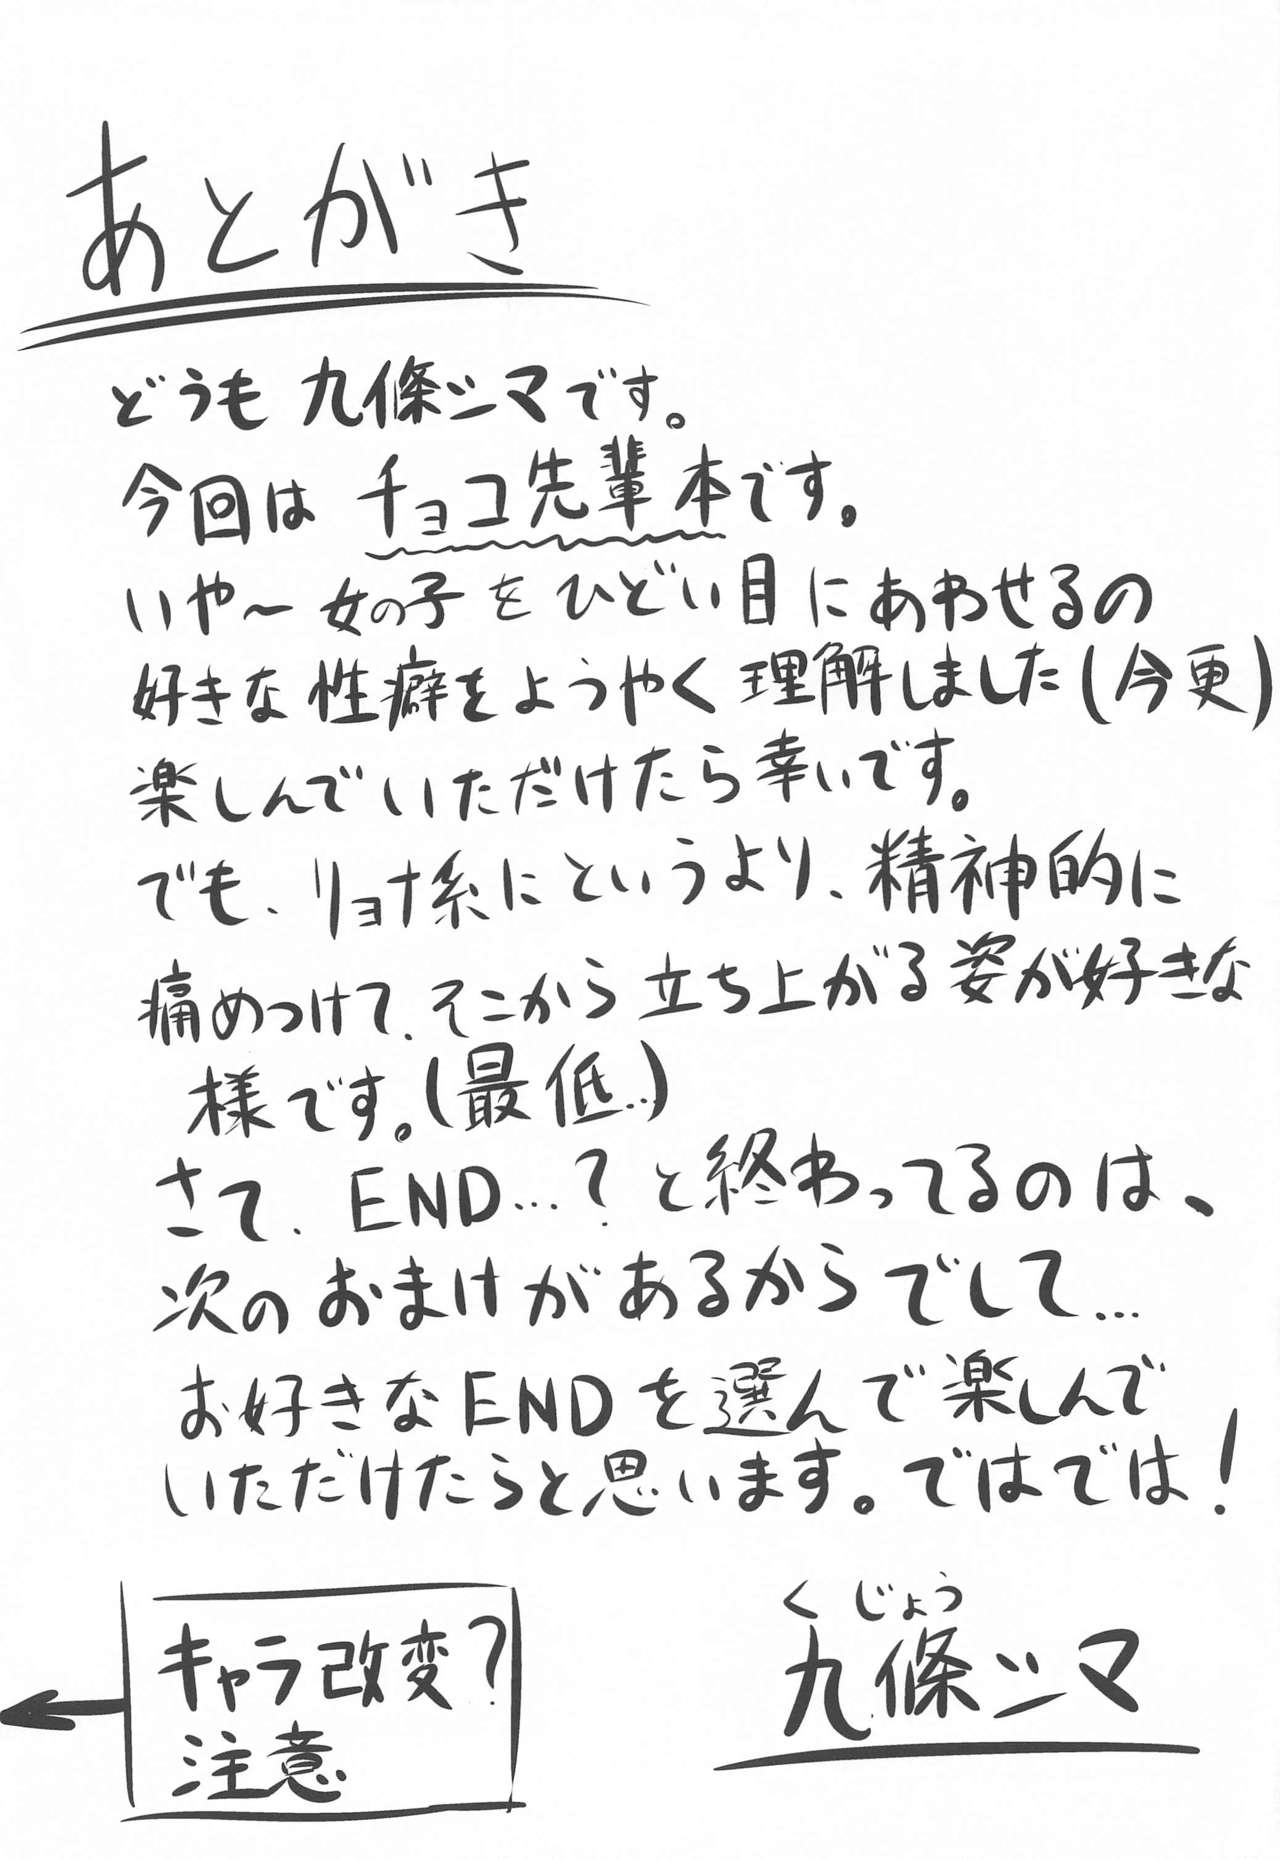 あとがき
どうも 九條シマです。
今回は チョコ先輩本です。
いや～ 女の子をひどい目にあわせるの
好きな性癖をようやく理解しました(今更)
楽しんでいただけたら幸いです。
でも、リョナ系にというより、精神的に
痛めつけて、そこから立ち上がる姿が好きな
様です。(最低…)
さて、END…?と終わってるのは、
次のおまけがあるからでして…
お好きなENDを選んで楽しんで
いただけたらと思います。ではでは!
キャラ改変?
注意
くじょう
九條シマ